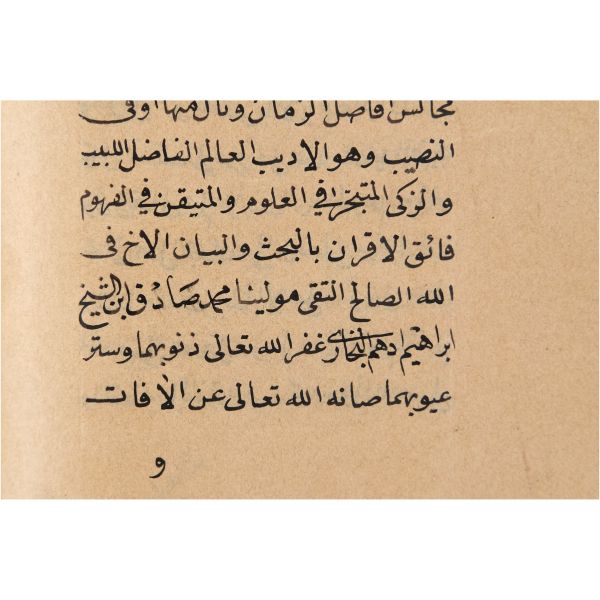 مجالس افاضل الزمان ونال منها اوفى
النصيب وهو الاديب العالم الفاضل اللبيب
والزكى المتبحر فى العلوم والمتيقن فى الفهوم
فائق الاقران بالبحث والبيان الاخ فى
الله الصالح التقى مولينا محمد صادق ابن الشيخ
ابراهيم ادهم البخارى غفر الله تعالى ذنوبهما وستر
عيوبهما صانه الله تعالى عن الافات
و